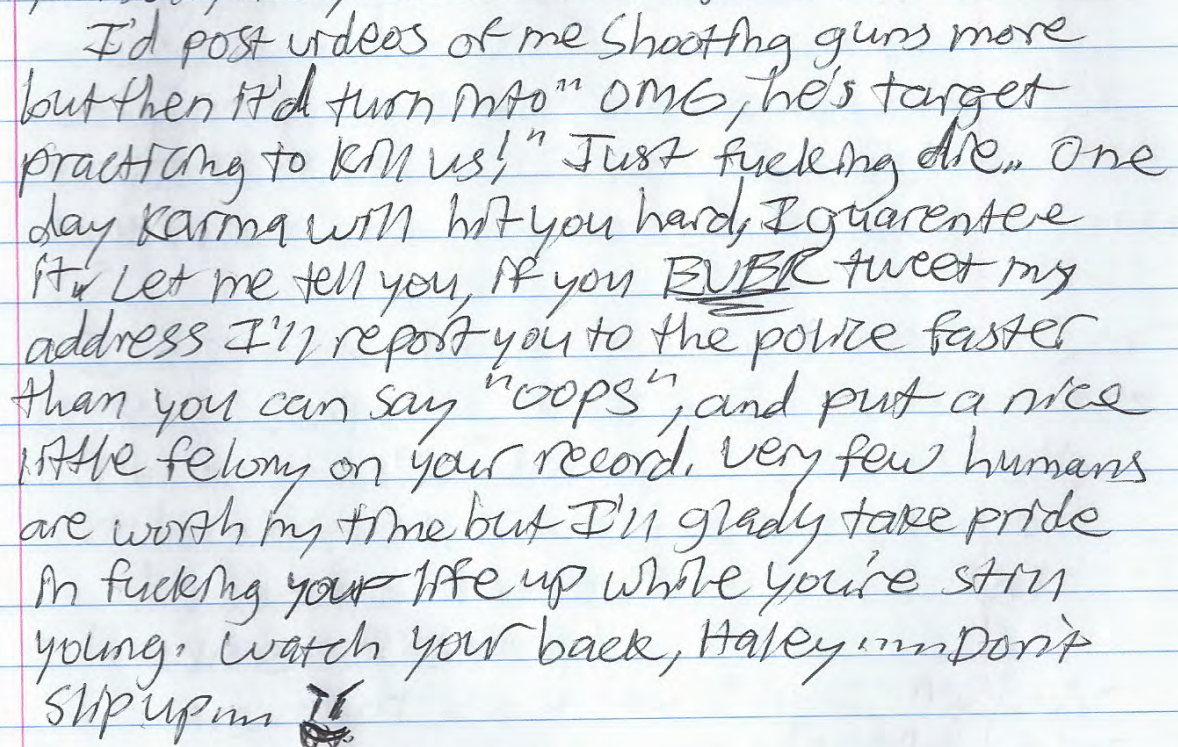 I'd post videos of me shooting guns more
but then it'd turn into" OMG, he's target
practicing to kill us!" Just fucking die.. One
day karma will hit you hard, I guarentee
it. Let me tell you, if you EVER tweet my
address I'll report you to the police faster
than you can say "oops", and put a nice
little felony on your record. Very few humans
are worth my time but I'll glady take pride
in fucking your life up while you're still
young. Watch your back, Haley..... Don't
slip up....